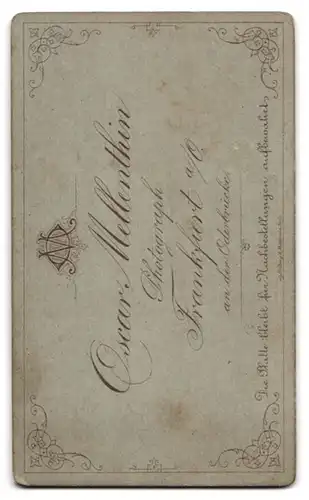 OM
Oscar Mellenthin
Photograph
Frankfurt a/O
an der Oderbrücke.
Die Platte bleibt für Nachbestellungen aufbewahrt.